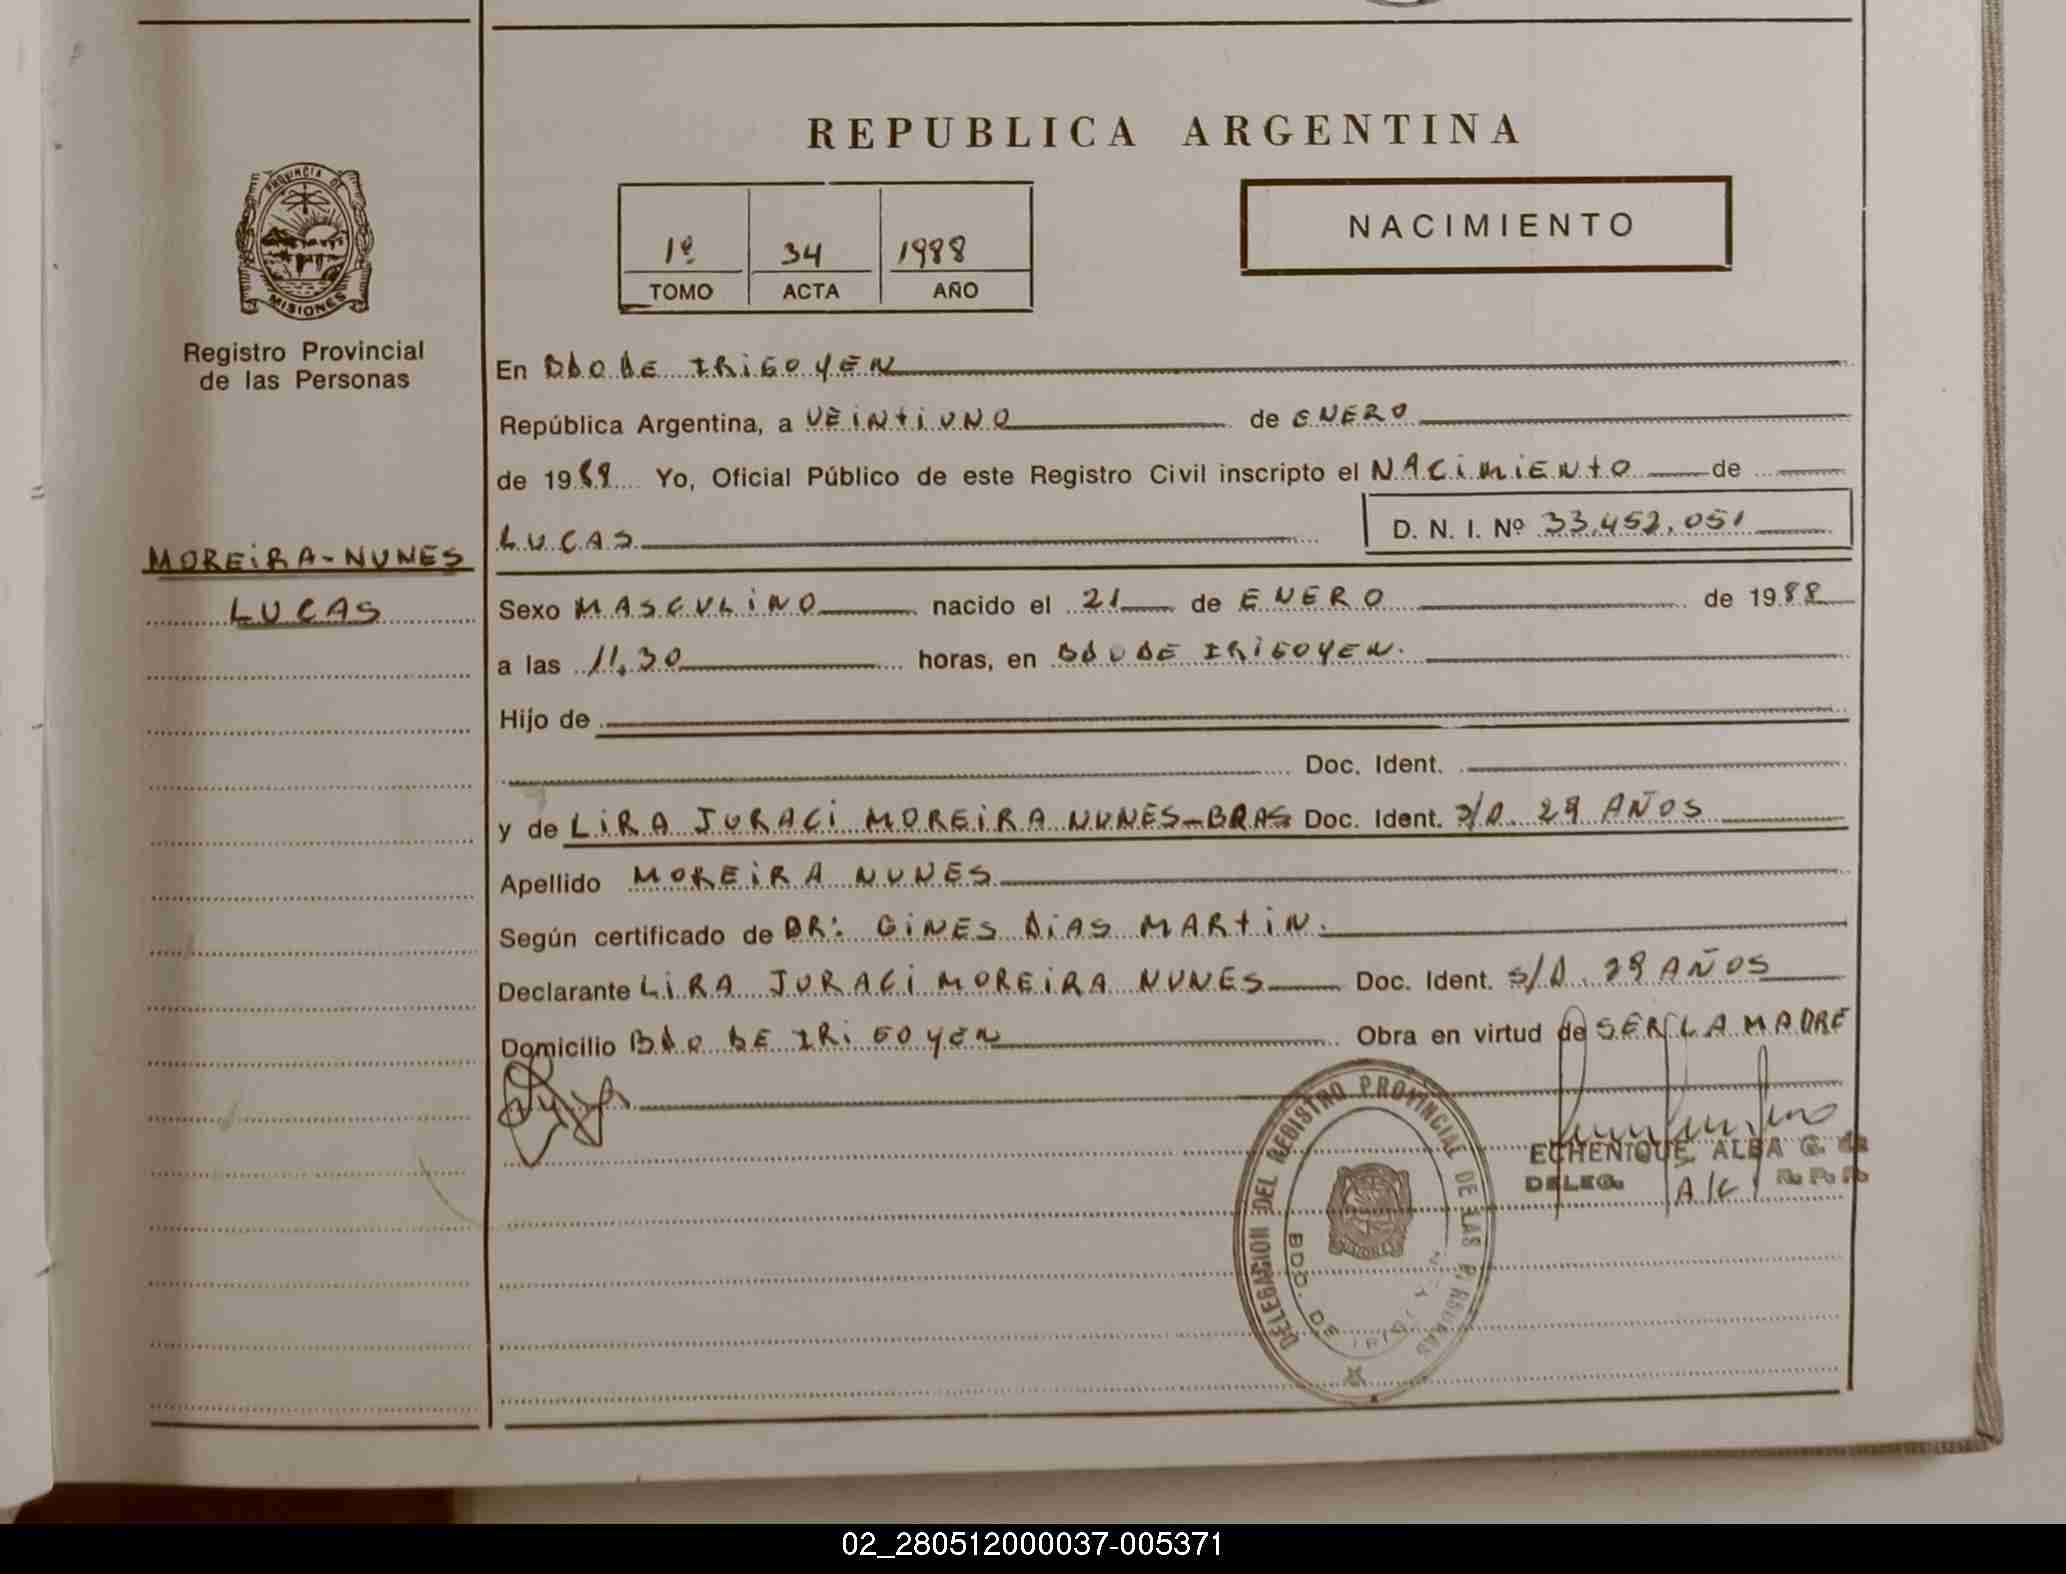 REPUBLICA ARGENTINA
PROVINCIA DE
MISIONES
Registro Provincial
de las Personas
1º 34 1988
TOMO ACTA AÑO
NACIMIENTO
En BDO DE IRIGOYEN
República Argentina, a VEINTIUNO de ENERO
de 1988 Yo, Oficial Público de este Registro Civil inscripto el NACIMIENTO de
LUCAS D. N. I. Nº 33.452.051
MOREIRA-NUNES
LUCAS
Sexo MASCULINO nacido el 21 de ENERO de 1988
a las 11,30 horas, en BDO DE IRIGOYEN.
Hijo de
Doc. Ident.
y de LIRA JURACI MOREIRA NUNES-BRAS Doc. Ident. S/D. 29 AÑOS
Apellido MOREIRA NUNES
Según certificado de DR: GINES DIAS MARTIN.
Declarante LIRA JURACI MOREIRA NUNES Doc. Ident. S/D. 29 AÑOS
Domicilio BDO DE IRIGOYEN Obra en virtud de SER LA MADRE
ECHENIQUE, ALBA G. de
DELEG. A/C R. P. P.
DELEGACION DEL REGISTRO PROVINCIAL DE LAS PERSONAS
BDO. DE IRIGOYEN
MISIONES
02_280512000037-005371